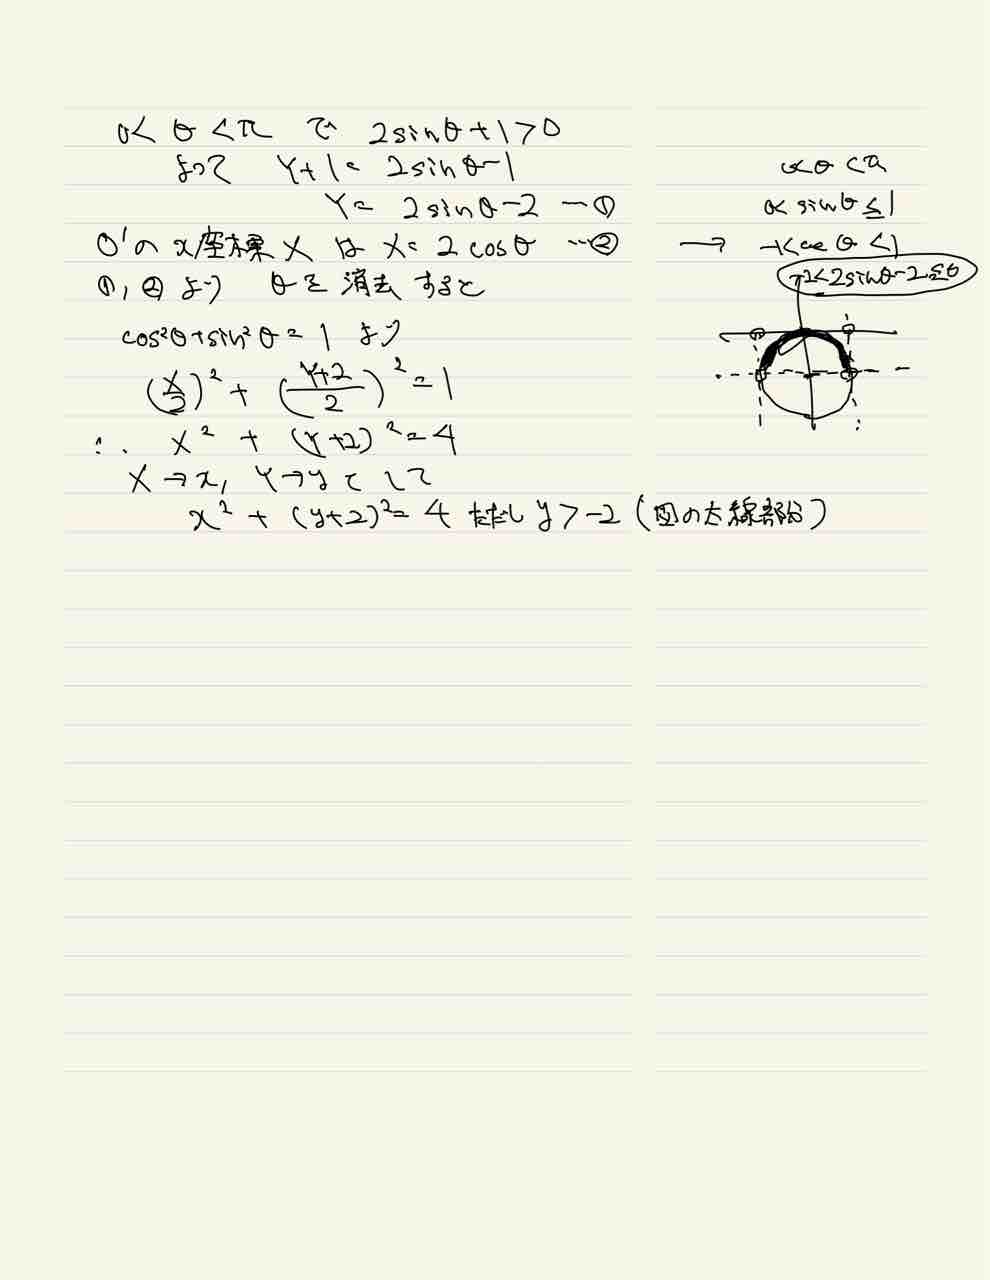 0<θ<π で 2sinθ+1>0
よって Y+1= 2sinθ-1
Y= 2sinθ-2 ―①
O'の x座標 X は X= 2cosθ …②
①,②より θを 消去 すると
cos²θ+sin²θ=1 より
(X/2)² + (Y+2/2)² =1
∴ X² + (Y+2)²=4
X→x, Y→yとして
x² + (y+2)²= 4 ただし y>-2 (図の太線部分)
0<θ<π
0<sinθ≦1
→ -1<cosθ<1
-2<2sinθ-2≦0